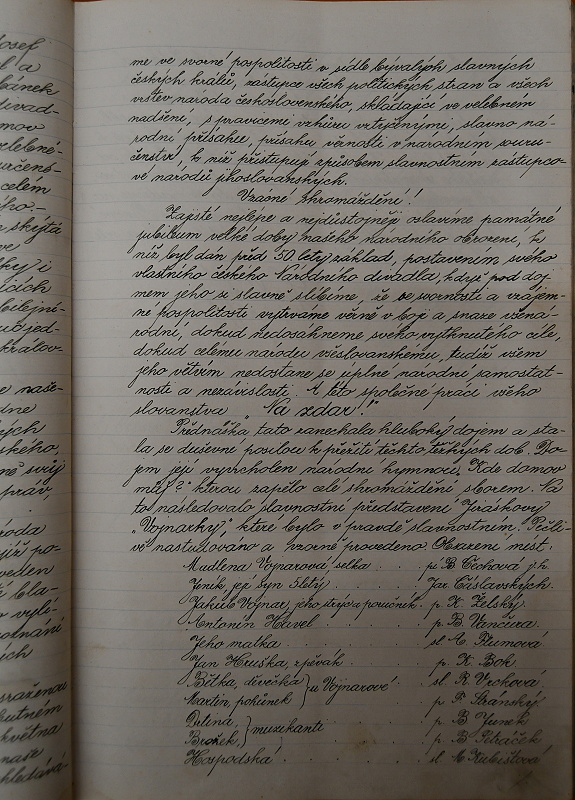 osef
l a
bánek
divad-
mov
velebné-
určené-
celém
ého-
a skýtá
ve
ky i
ících
bilejní-
u jed-
králov-
e naše-
dne
ých
ského,
né svůj
práv,
roda
ejší po-
veden
é bla-
o vyli-
potnání
ých
sraženou
krutném
května
naše
hledává
me ve svorné pospolitosti v sídle bývalých slavných
českých králů, zástupce všech politických stran a všech
vrstev národa československého, skládající ve velebném
nadšení, s pravicemi vzhůru vztyčenými, slavno ná-
rodní přísahu, přísahu věrnosti v národním souru-
čenství, k níž přistupují způsobem slavnostním zástupco-
vé národů jihoslovanských.
Vzácné shromáždění!
Zajisté nejlépe a nejdůstojněji oslavíme památné
jubileum velké doby našeho národního obrození, k
níž byl dán před 50 lety základ, postavením svého
vlastního českého Národního divadla, když pod doj
mem jeho si slavně slíbíme, že ve svornosti a vzájem-
né pospolitosti vytrváme věrně v boji a snaze všená-
rodní, dokud nedosáhneme svého vytknutého cíle,
dokud celému národu všeslovanskému, tudíž všem
jeho větvím nedostane se úplné národní samostat-
nosti a nezávislosti. A této společné práci všeho
slovanstva "Na zdar!"
Přednáška tato zanechala hluboký dojem a sta-
la se duševní posilou k přežití těchto těžkých dob. Do-
jem její vyvrcholen národní hymnou "Kde domov
můj?" kterou zapělo celé shromáždění sborem. Na
to následovalo slavnostní představení Jiráskovy
"Vojnarky", které bylo v pravdě slavnostním. Pečli-
vě nastudováno a vzorně provedeno. Obsazení míst:
Madlena Vojnarová, selka . . pí B. Čechova j. h.
Jeník, její syn 5letý . . . Jar. Čáslavských.
Jakub Vojnar, jeho strýc a poručník . p. K. Želský.
Antonín Havel . . . . p. B. Vančura.
Jeho matka . . . . sl. A. Plumová
Jan Hruška, zpěvák . . . p. K. Bok
Bětka, děvečka } u Vojnarové . sl. R. Vrcková.
Martin, pohůnek . p. F. Stránský
Drlina, } muzikanti . . p. B. Junek
Brožek, . . p. B. Petráček
Hospodská . . . . sl. A. Kubištová